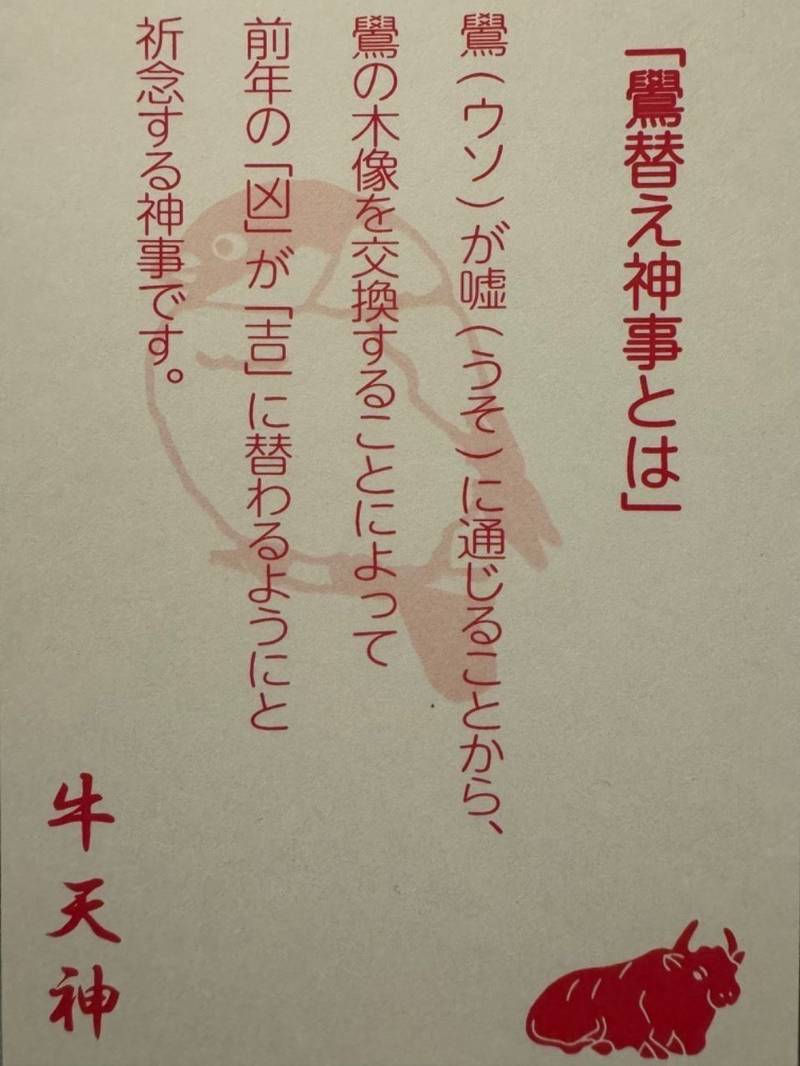 「鷽替え神事とは」
鷽（ウソ）が嘘（うそ）に通じることから、
鷽の木像を交換することによって
前年の「凶」が「吉」に替わるようにと
祈念する神事です。
牛天神